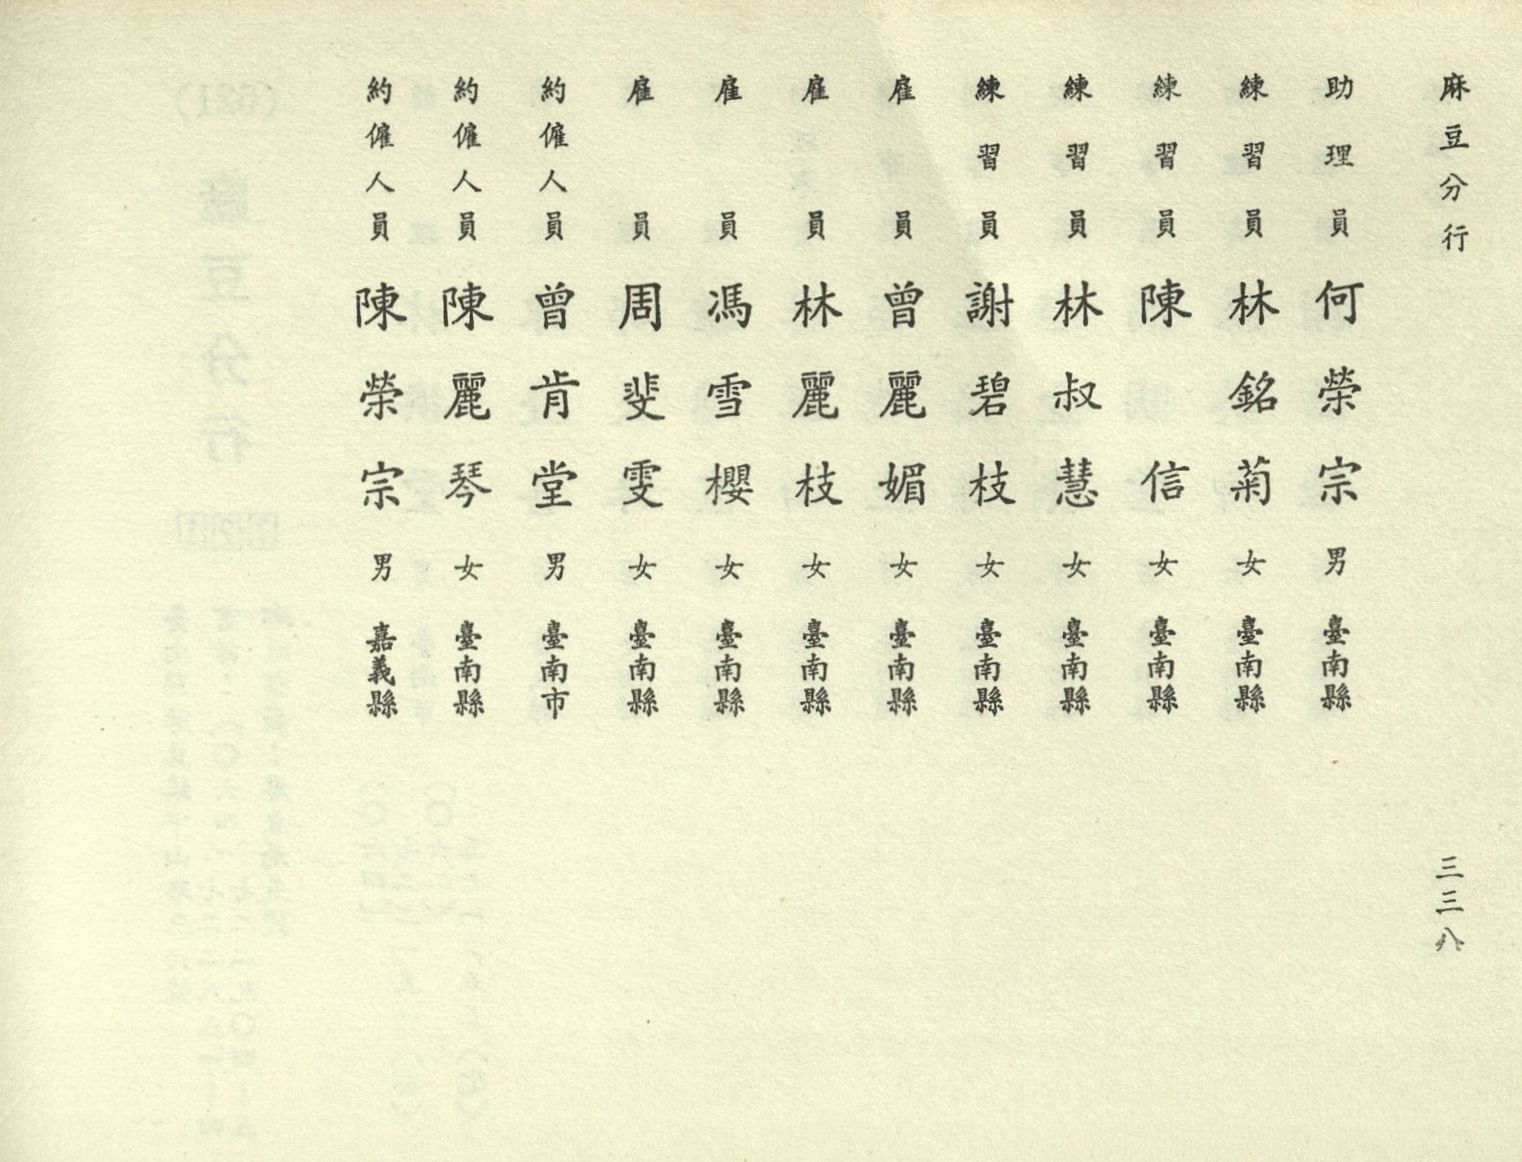 麻豆分行
三三八
助理員 何榮宗 男 臺南縣
練習員 林銘菊 女 臺南縣
練習員 陳信 女 臺南縣
練習員 林叔慧 女 臺南縣
練習員 謝碧枝 女 臺南縣
雇員 曾麗媚 女 臺南縣
雇員 林麗枝 女 臺南縣
雇員 馮雪櫻 女 臺南縣
雇員 周斐雯 女 臺南縣
約僱人員 曾肯堂 男 臺南市
約僱人員 陳麗琴 女 臺南縣
約僱人員 陳榮宗 男 嘉義縣